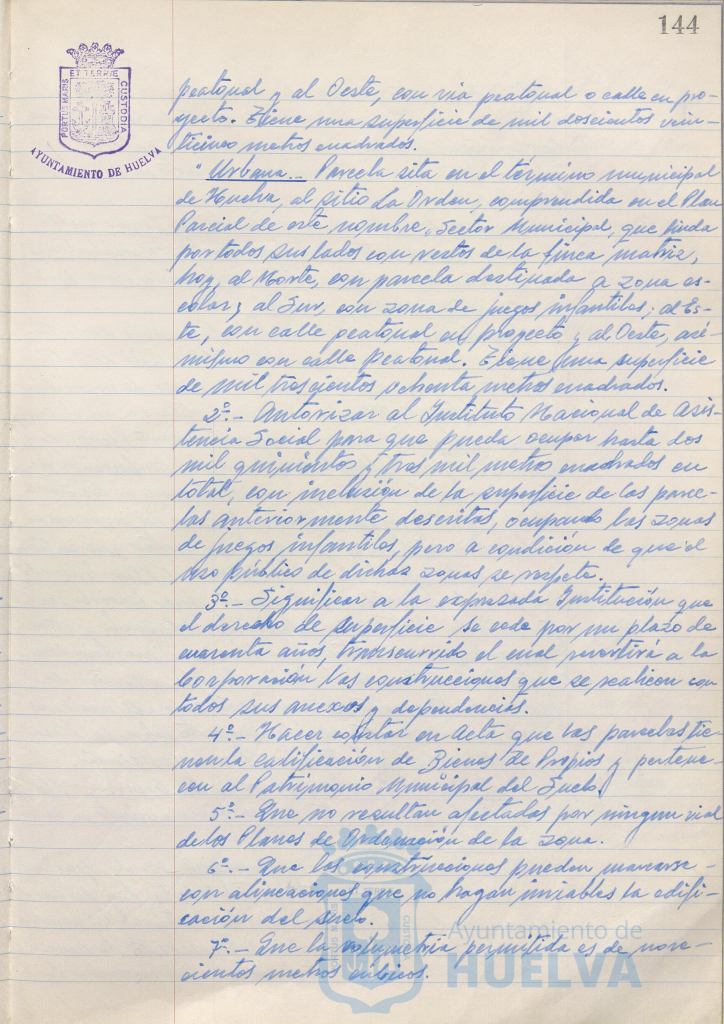 144
PORTUS MARIS
ET TERRÆ
CUSTODIA
AYUNTAMIENTO DE HUELVA
peatonal y al Oeste, con vía peatonal o calle en pro-
yecto. Tiene una superficie de mil doscientos vein-
ticinco metros cuadrados.
"Urbana.- Parcela sita en el término municipal
de Huelva, al sitio La Orden, comprendida en el Plan
Parcial de este nombre, Sector Municipal, que linda
por todos sus lados con restos de la finca matriz,
hoy, al Norte, con parcela destinada a zona es-
colar; al Sur, con zona de juegos infantiles; al Es-
te, con calle peatonal en proyecto y al Oeste, asi-
mismo con calle peatonal. Tiene una superficie
de mil trescientos ochenta metros cuadrados.
2º.- Autorizar al Instituto Nacional de Asis-
tencia Social para que pueda ocupar hasta dos
mil quinientos y tres mil metros cuadrados en
total, con inclusión de la superficie de las parce-
las anteriormente descritas, ocupando las zonas
de juegos infantiles, pero a condición de que el
uso público de dichas zonas se respete.
3º.- Significar a la expresada Institución que
el derecho de superficie se cede por un plazo de
cuarenta años, transcurrido el cual revertirá a la
Corporación las construcciones que se realicen con
todos sus anexos y dependencias.
4º.- Hacer constar en Acta que las parcelas tie-
nen la calificación de Bienes de Propios y pertene-
cen al Patrimonio Municipal del Suelo.
5º.- Que no resultan afectadas por ningun vial
de los Planes de Ordenación de la zona.
6º.- Que las construcciones pueden marcarse
con alineaciones que no hagan inviables la edifi-
cación del suelo.
7º.- Que la volumetría permitida es de nove-
cientos metros cúbicos.
Ayuntamiento de
HUELVA